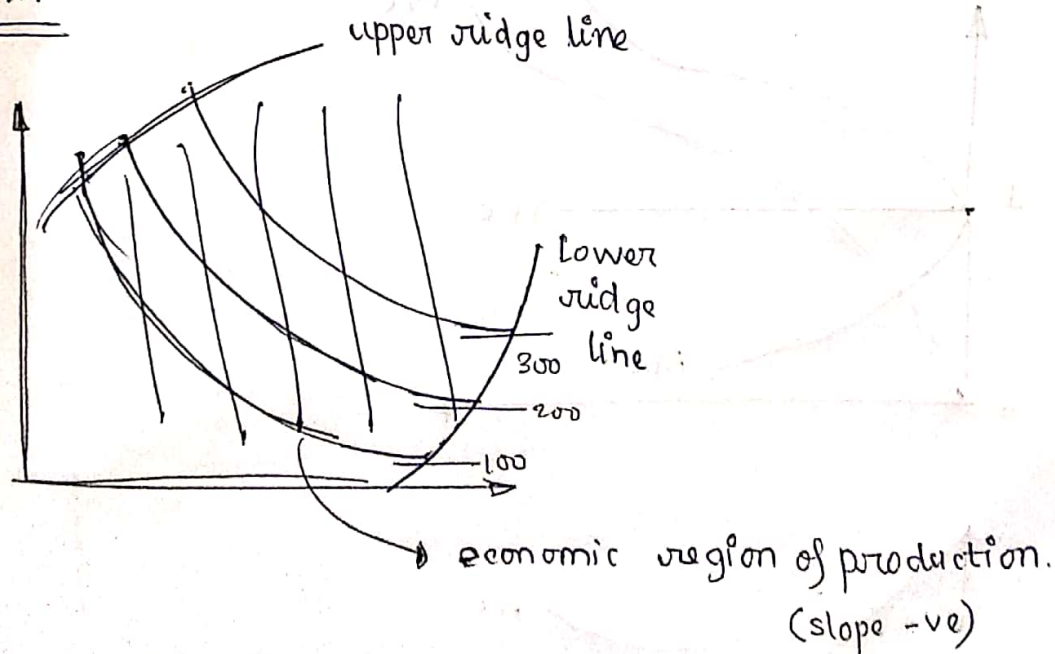 upper ridge line
Lower
ridge
line :
300
200
100
economic region of production.
(slope -ve)